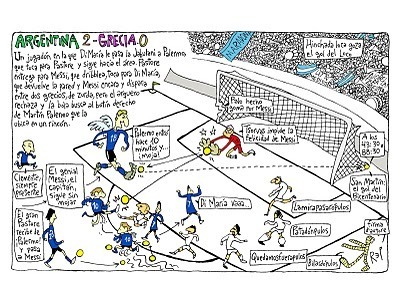 ARGENTINA 2 - GRECIA 0
Un jugadón en la que Di María le pasa la Jabulani a Palermo
que toca para Pastore y sigue hacia el área. Pastore
entrega para Messi, que dribblea, toca para Di María,
que devuelve la pared y Messi encara y dispara
entre dos griegos, de zurda, pero el arquero
rechaza y la bola busca al botín derecho
de Martín Palermo que la
ubica en un rincón.
Hinchada loca goza
el gol del Loco
Palo hecho
goma por Messi
Palermo entró
hace 10
minutos y
¡moja!
Tzorvas impide la
felicidad de Messi
A los
43:30 a
88:30
Clemente,
siempre
presente
El genial
Messi, el
capitán,
sigue sin
mojar
San Martín:
el gol del
Bicentenario
El gran
Pastore
recibe de
Palermo
y pasa
a Messi
Di María vaaa...
Lamirapasarópulos
Patadónpulos
Quedamosfuerapulos
Boludópulos
Firma